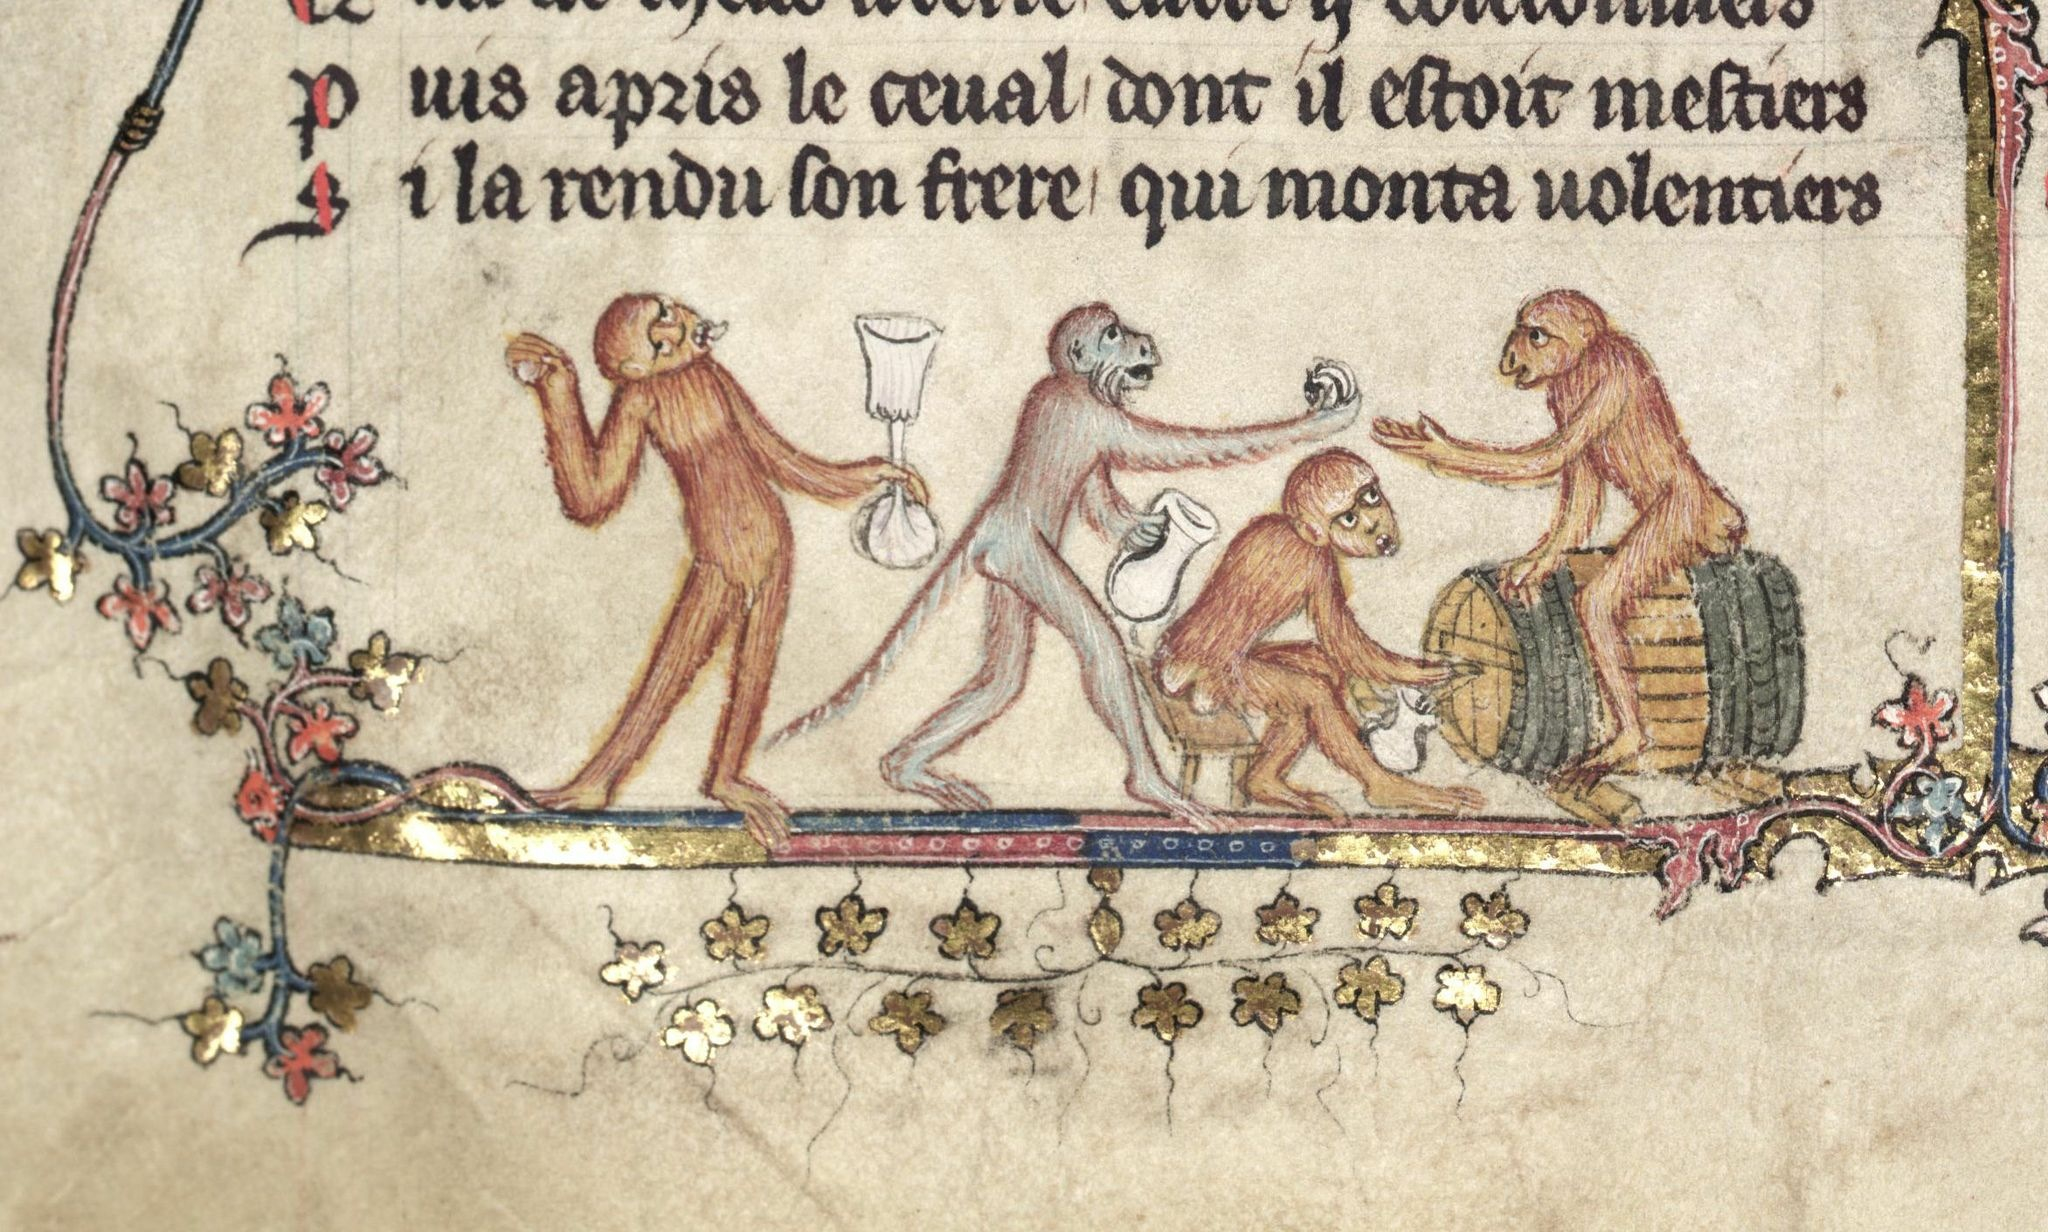 Puis apris le ceual dont il estoit mestiers
Si la rendu son frere qui monta uolentiers